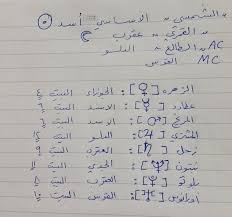 الشمسي - الاساسي أسد ☉
القمري - عقرب ☾
AC الطالع - الدلو
MC القوس
الزهرة [♀]: الجوزاء البيت ٤
عطارد [☿]: الاسد البيت ٦
المريخ [♂]: الاسد البيت ٦
المشتري [♃]: الدلو البيت
زحل [♄]: العقرب البيت ٩
نبتون [♆]: الجدي البيت
بلوتو [♇]: العقرب البيت
أورانوس [♅]: القوس البيت